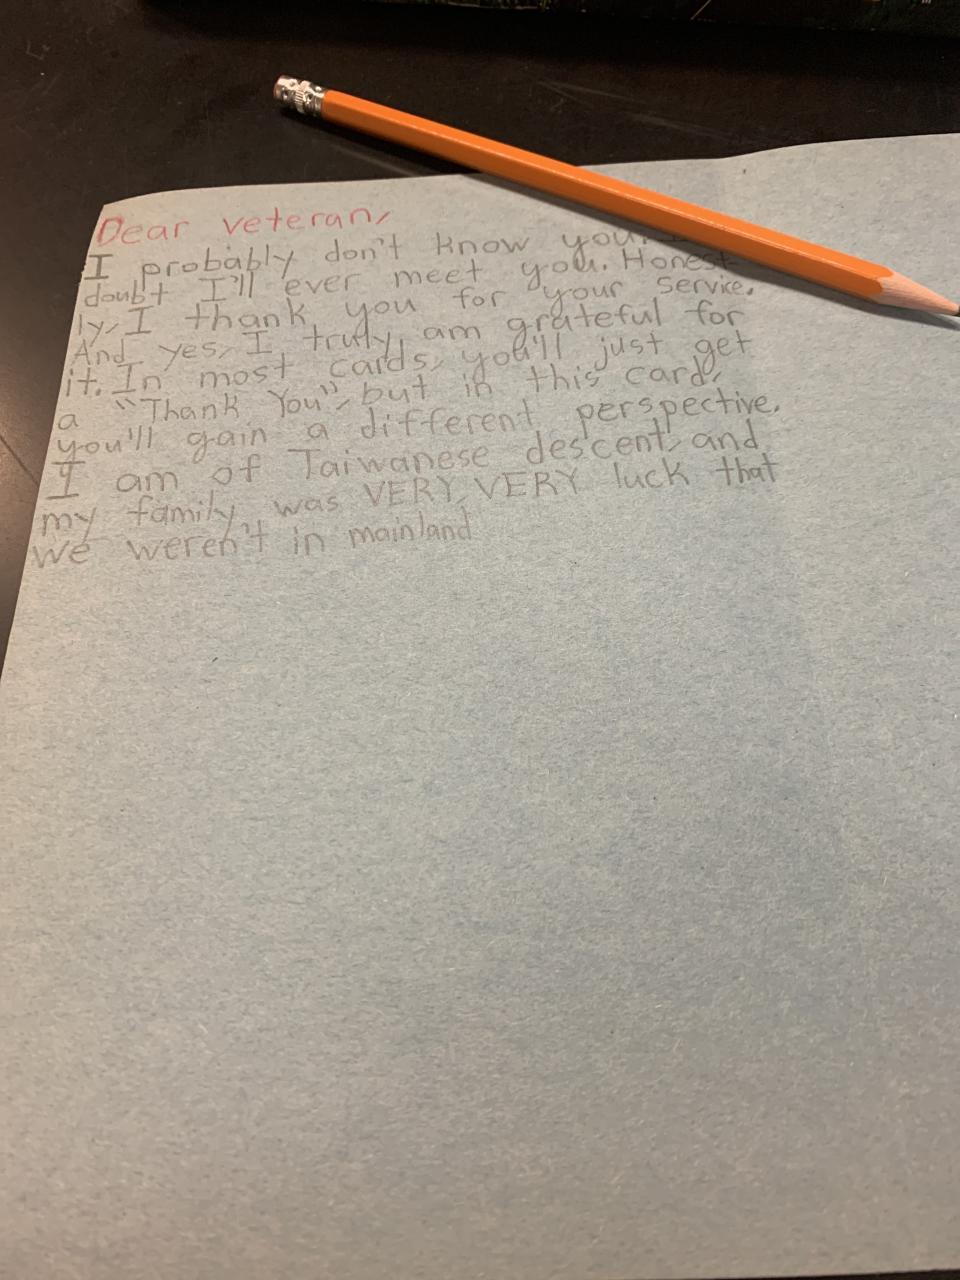 Dear veteran,
I probably don't know you. I
doubt I'll ever meet you. Honest-
ly, I thank you for your service.
And yes, I truly am grateful for
it. In most cards, you'll just get
a "Thank You", but in this card,
you'll gain a different perspective.
I am of Taiwanese descent, and
my family was VERY, VERY luck that
we weren't in mainland